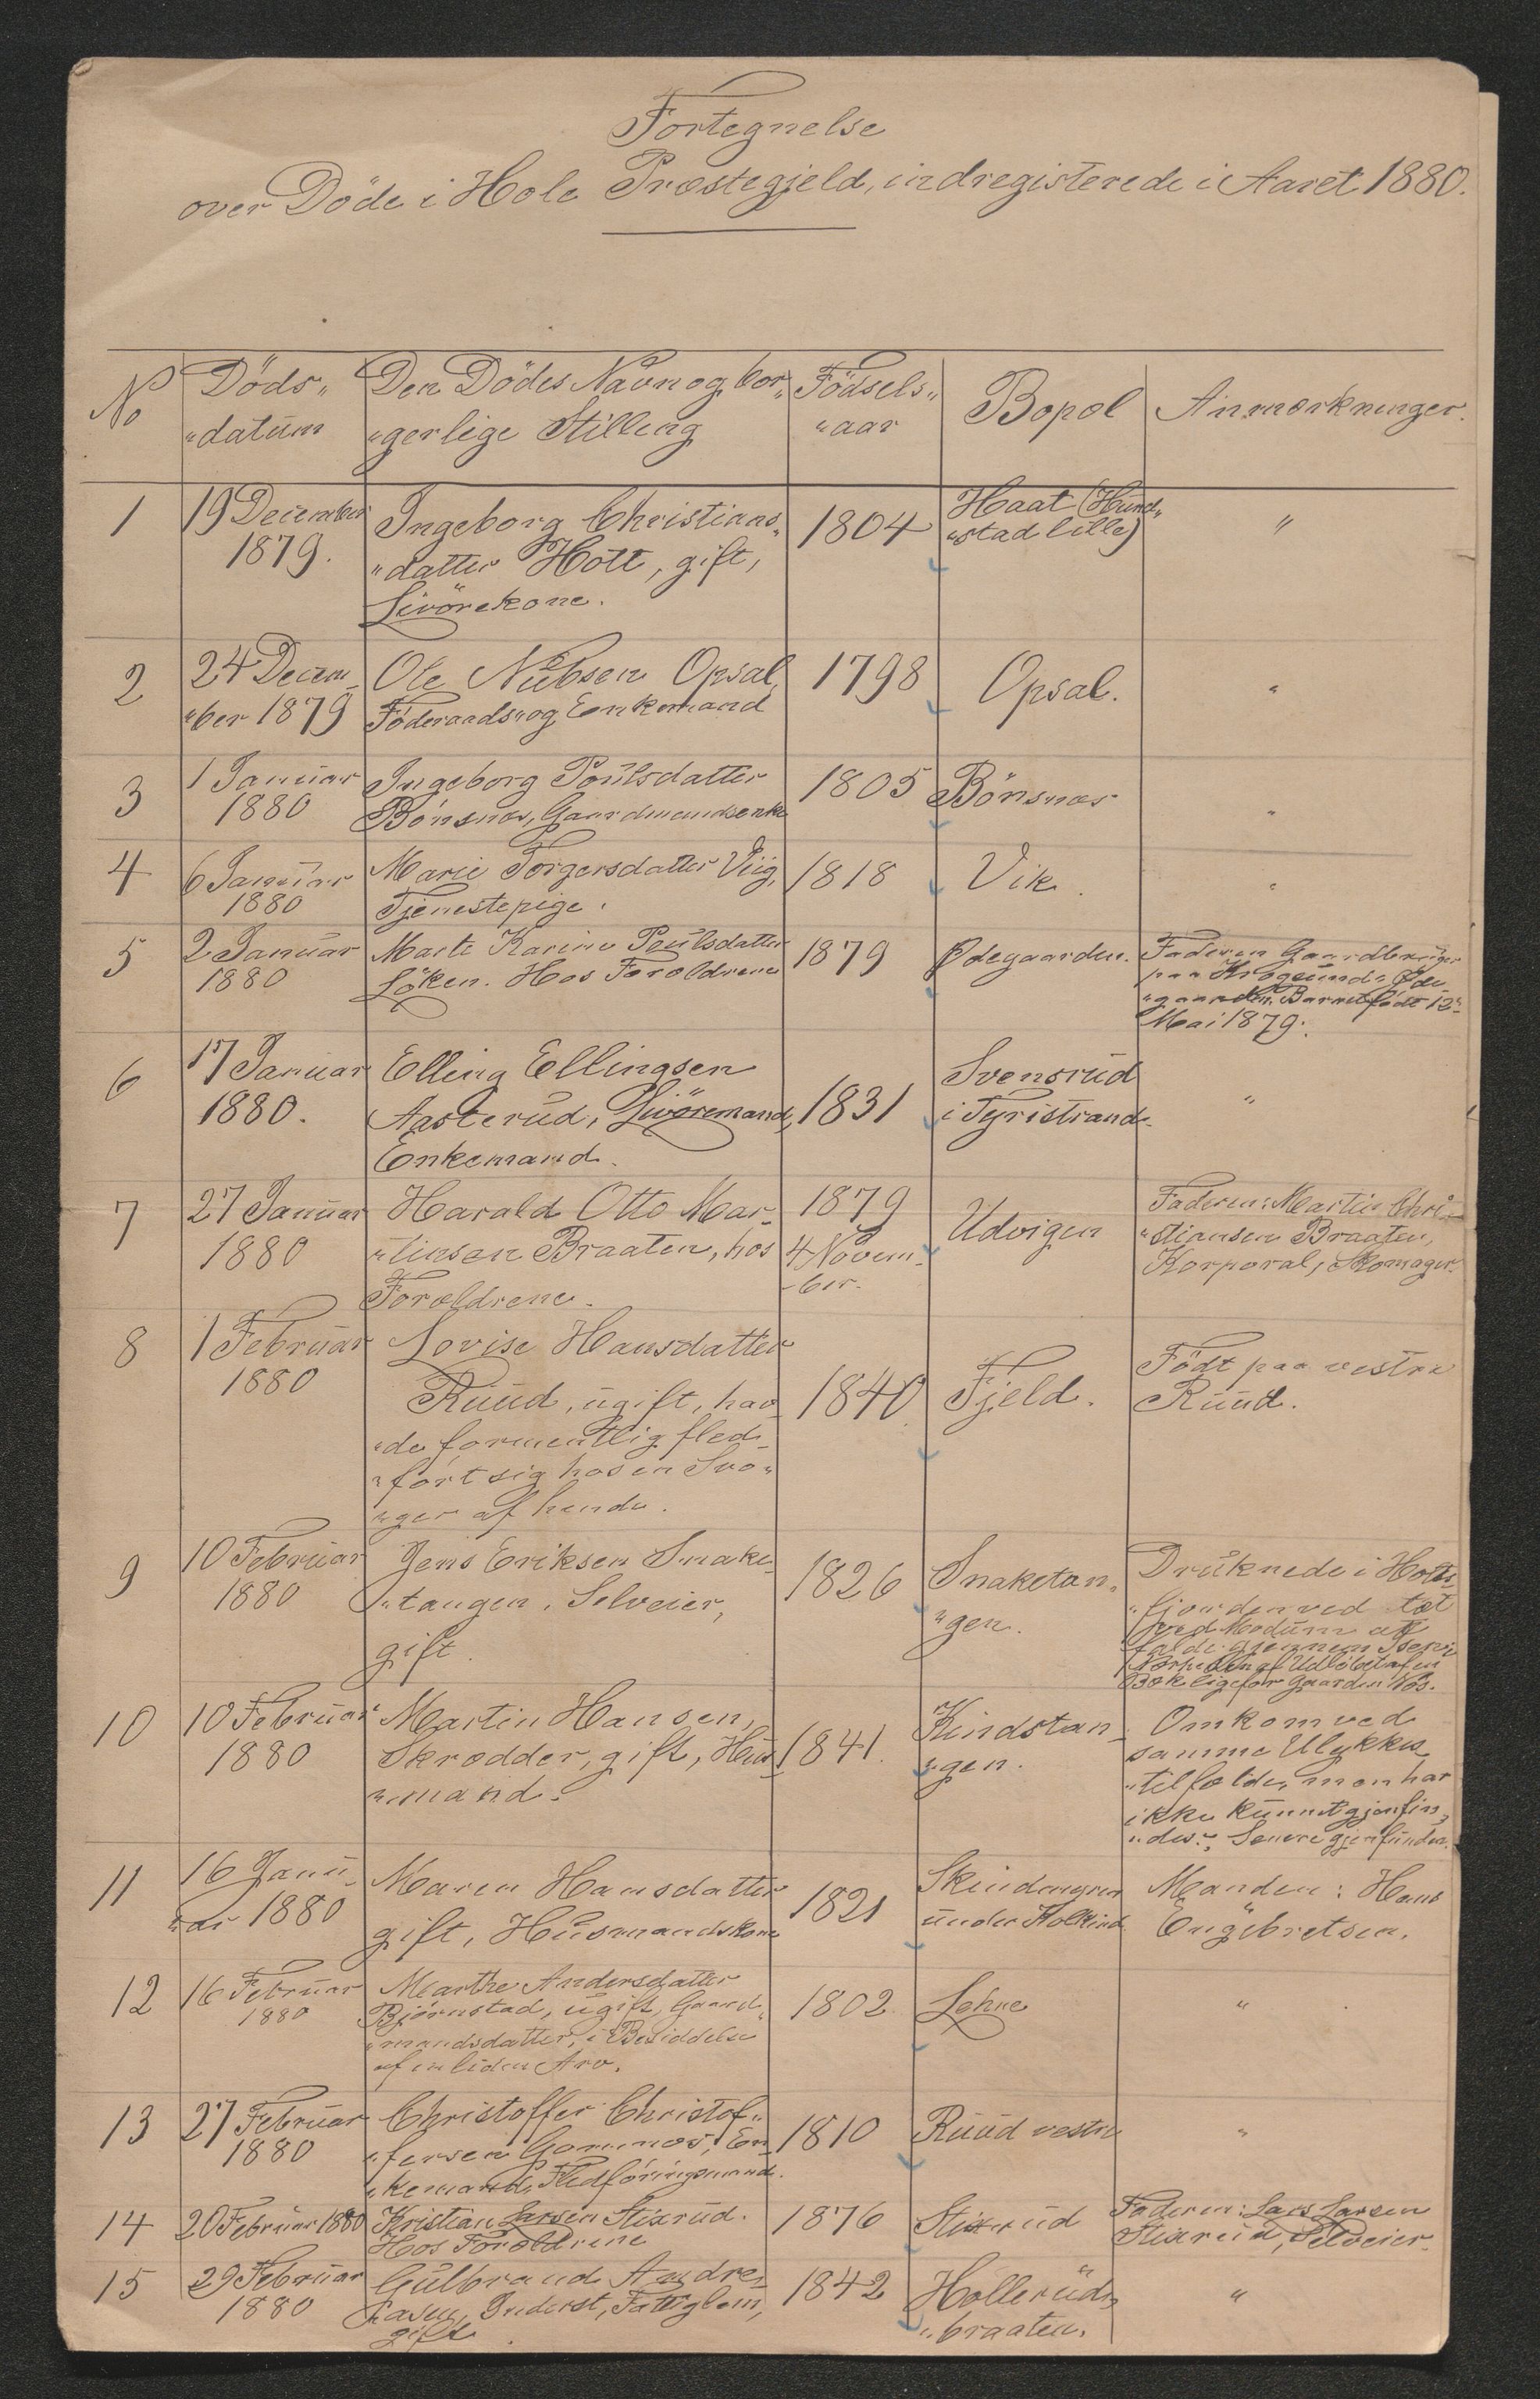 Fortegnelse
over Döde i Hole Præstegjeld, indregisterede i Aaret 1880.
No
Döds„
„datum
Den Dödes Navn og bor„
„gerlige Stilling
Födsels„
„aar
Bopæl
Anmærkninger.
1
19 December
1879.
Ingeborg Christians„
„datter Hött, gift,
Livörekone.
1804
Haat (Hund„
„stad lille)
„
2
24 Decem„
„ber 1879
Ole Nielsen Opsal,
Föderaads„ og Enkemand
1798
Opsal.
„
3
1 Januar
1880
Ingeborg Poulsdatter
Bönsnæs, Gaardmandsenke
1805
Bönsnæs
„
4
6 Januar
1880
Marie Torgersdatter Viig,
Tjenestepige.
1818
Vik.
„
5
2 Januar
1880
Marte Karine Poulsdatter
Löken. Hos Forældrene
1879
Ødegaarden.
Faderen Gaardbruger
paa Krogsund„ Øde„
„gaarden. Barnet födt 12te
Mai 1879.
6
17 Januar
1880.
Elling Ellingsen
Aasterud, Livöremand,
Enkemand.
1831
Svensrud
i Tyristrand.
„
7
27 Januar
1880
Harald Otto Mar„
„tinsen Braaten, hos
Forældrene.
1879
4 Novem„
„ber.
Udvigen
Faderen: Martin Chri„
„stiansen Braaten,
Korporal, Skomager.
8
1 Februar
1880
Lovise Hansdatter
Ruud, ugift, hav„
„de formentlig fled„
„fört sig hos en Svo„
„ger af hende.
1840
Fjeld.
Födt paa vestre
Ruud.
9
10 Februar
1880
Jens Eriksen Snake„
„tangen, Selveier,
gift.
1826
Snaketan„
„gen.
Druknede i Hols„
„fjorden ved tæt
ved Modum at
falde gjennem Isen i
af Udlöbet af en
Bæk ligefor Gaarden
10
10 Februar
1880
Martin Hansen,
Skrædder, gift, Hus„
„mand.
1841.
Kindstan„
„gen.
Omkom ved
samme Ulykkes„
„tilfælde, man har
ikke kunnet gjenfin„
„des. Senere gjenfunden.
11
16 Janu„
„ar 1880
Maren Hansdatter
gift, Husmandskone
1821
under
Manden: Hans
Engebretsen.
12
16 Februar
1880
Marthe Andersdatter
Bjørnstad, ugift, Gaard„
„mandsdatter, i Besiddelse
af en liden Arv.
1802.
Lehne
„
13
27 Februar
1880
Christoffer Christof„
„fersen Gomnæs, En„
„kemand, Fledföringsmand.
1810
Ruud vestre
„
14
20 Februar 1880
Kristian Larsen Stixrud.
Hos Forældrene
1876
Stixrud
Faderen: Lars Larsen
Stixrud, Selveier.
15
29 Februar
1880
Gulbrand Andre„
„asen, Inderst, Fattiglem,
gift.
1842
Hollerüds„
„braaten.
„